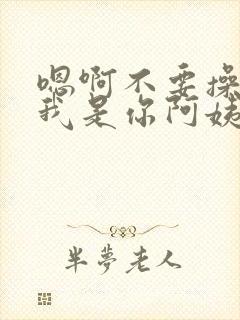 嗯啊不要操
我是你阿姨
半夢老人